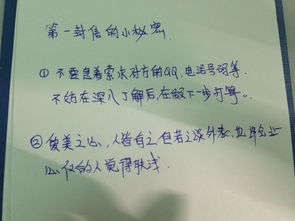 第一封信的小秘密
① 不要急着索求对方的QQ,电话号码等。
不妨在深入了解后,在做下一步打算。
② 爱美之心,人皆有之,但若只谈外表,也许会让
心仪的人觉得肤浅。